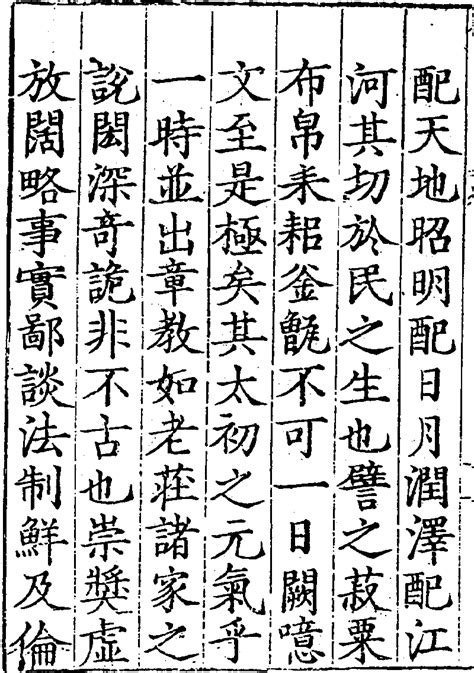 配天地昭明配日月潤澤配江
河其切於民之生也譬之菽粟
布帛耒耜釜甑不可一日闕噫
文至是極矣其太初之元氣乎
一時並出章教如老莊諸家之
說閎深奇詭非不古也崇奬虛
放闊略事實鄙談法制鮮及倫